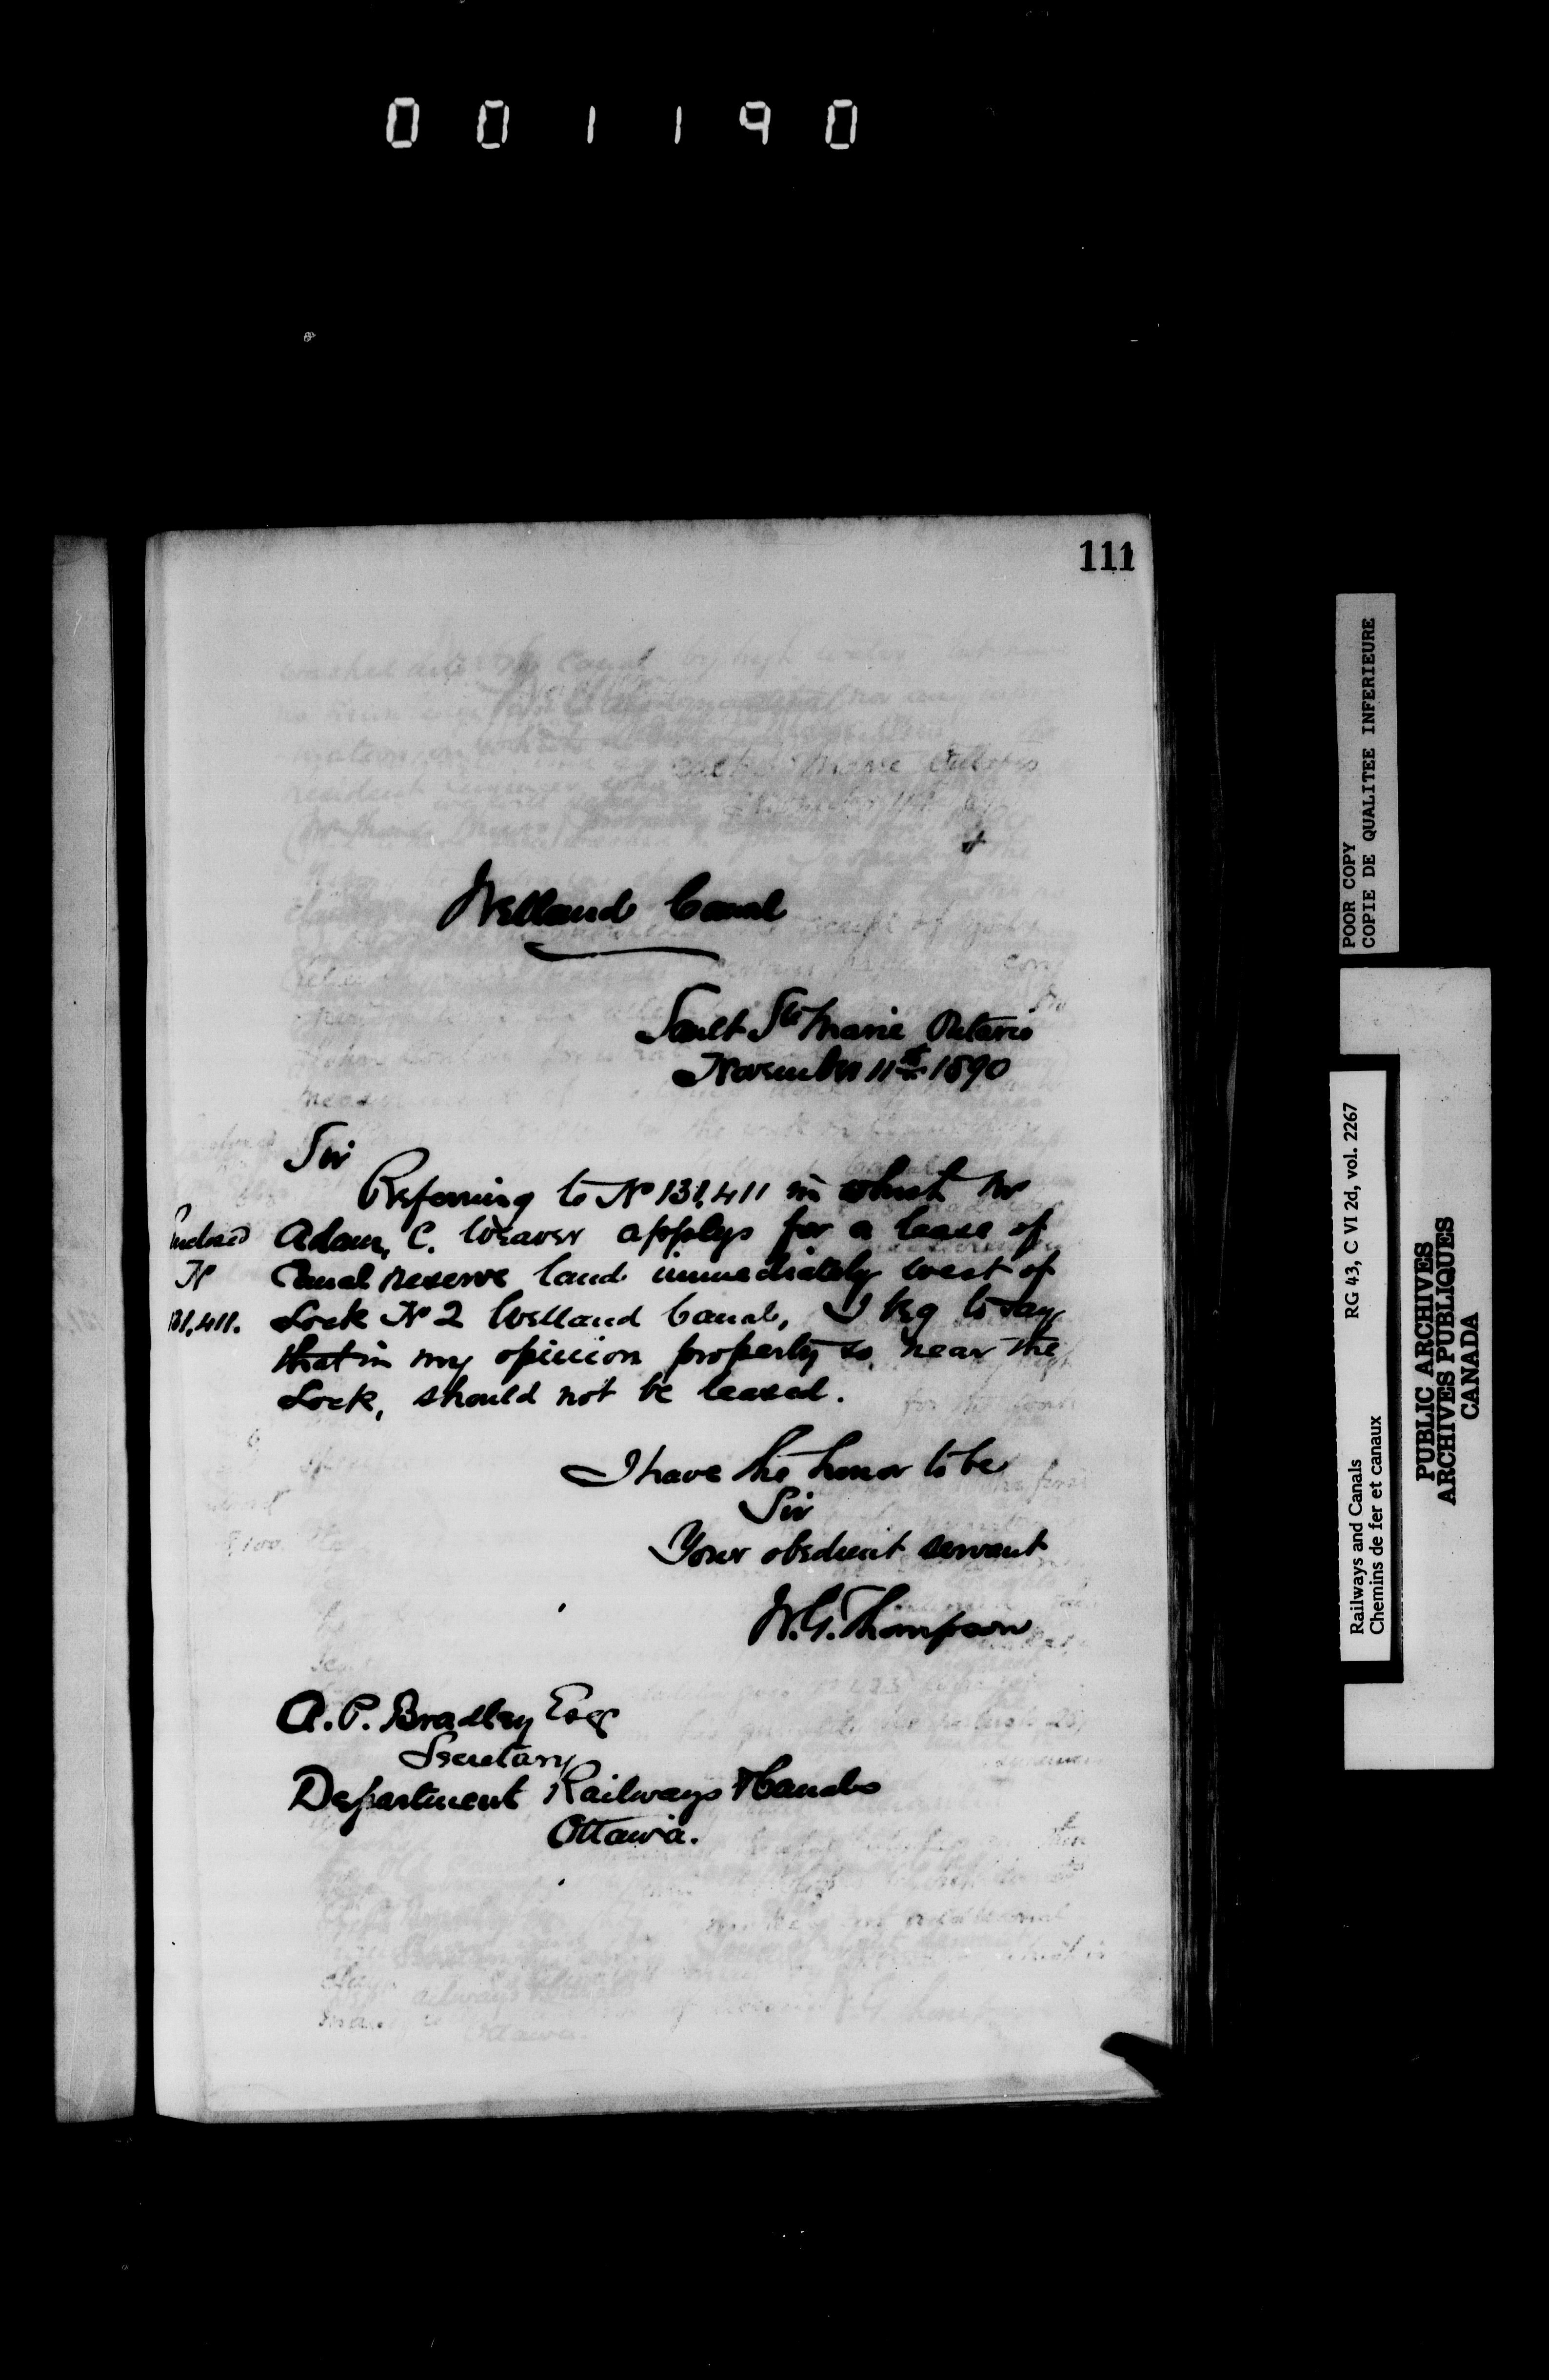 001190
111
Welland Canal
Sault Ste Marie Ontario
November 11th 1890
Sir
Referring to No 131,411 in which Mr
Adam, C. Weaver applys for a lease of
Canal reserve land immediately west of
Lock No 2 Welland Canal, I beg to say
that in my opinion property so near the
Lock, should not be leased.
Enclosed
No
131,411.
I have the honor to be
Sir
Your obedient servant
W.G. Thompson
A. P. Bradley Esq
Secretary
Department Railways & Canals
Ottawa.
POOR COPY
COPIE DE QUALITEE INFERIEURE
RG 43, C VI 2d, vol. 2267
Railways and Canals
Chemins de fer et canaux
PUBLIC ARCHIVES
ARCHIVES PUBLIQUES
CANADA